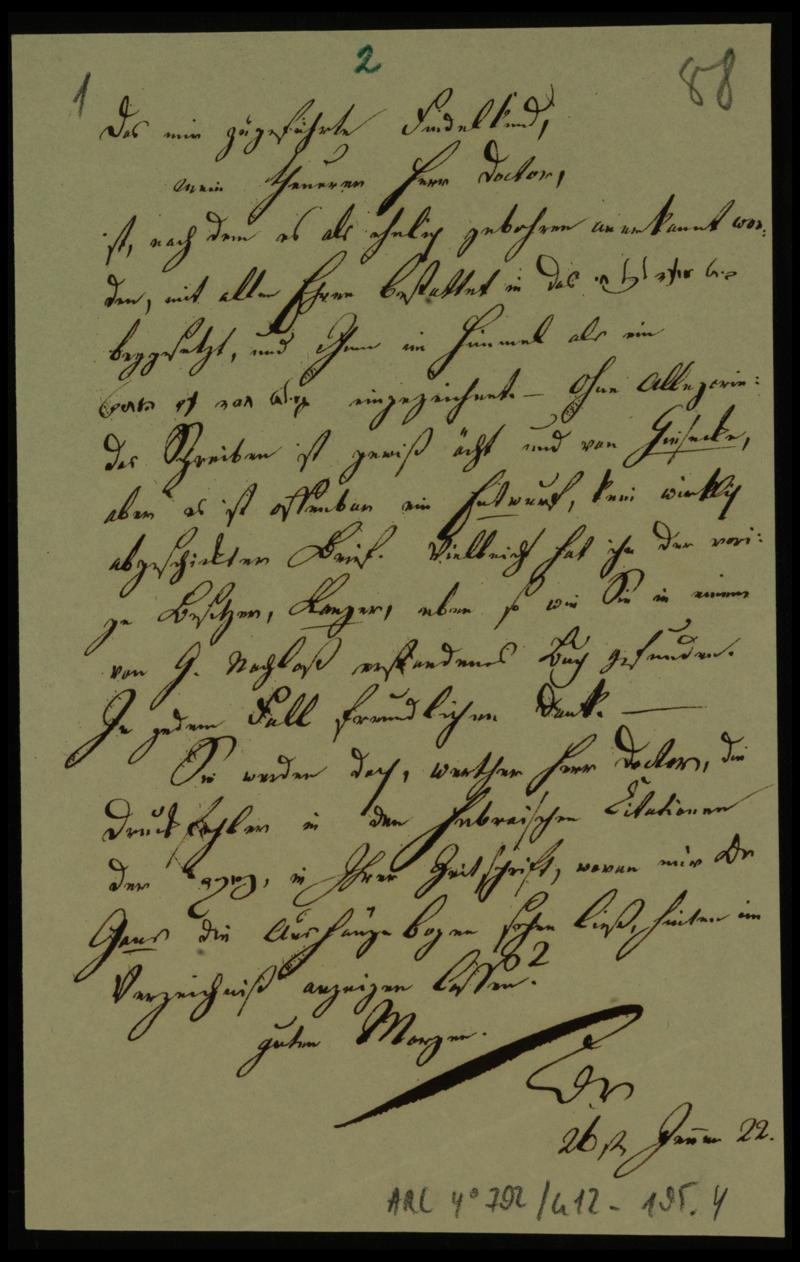 2
1
88
Das mir zugeführte Findelkind,
mein theurer Herr Doctor,
ist, nach dem es als ehelich gebohren anerkannt wor:
den, mit allen Ehren bestattet in das
beygesetzt, und Ihnen im Himmel als ein
eingezeichnet. — Ohne Allegorie:
das Schreiben ist gewiß ächt und von Giesecke,
aber es ist offenbar ein Entwurf, kein wirklich
abgeschickter Brief. Vielleicht hat ihn der vori:
ge Besitzer, eben so wie Sie in einem
von G. Nachlaß erstandenes Buch gefunden.
In jedem Fall freundlichen Dank. —
Sie werden doch, werther Herr Doctor, die
Druckfehler in den hebraischen Citationen
der in Ihrer Zeitschrift, wovon mir Dr
Gans die Aushängebogen sehen ließ, hinten im
Verzeichniß anzeigen lassen?
guten Morgen.
26st Jenner 22.
ARC 4° 792/G12 - 195.4